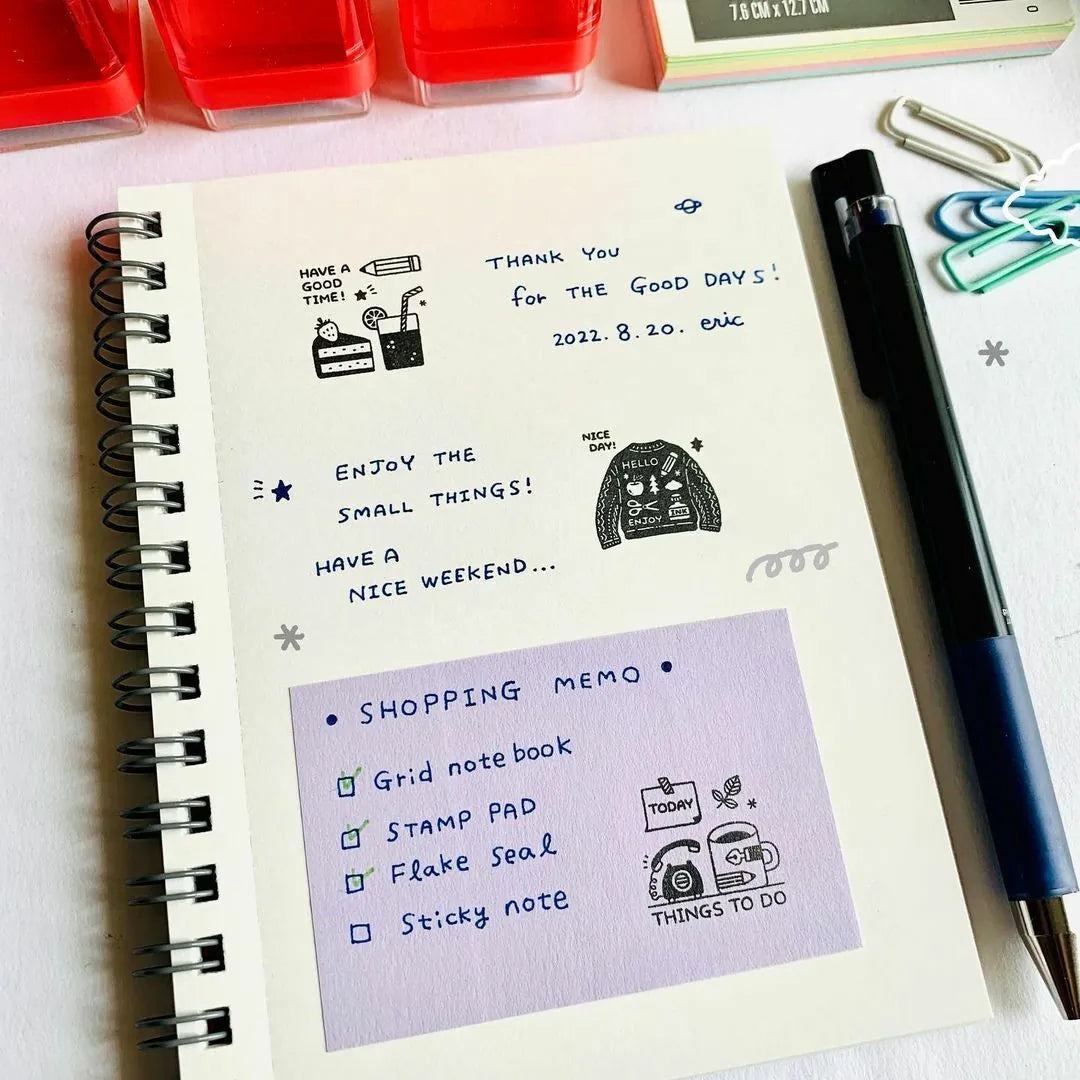 7.6 CM x 12.7 CM
HAVE A
GOOD
TIME!
THANK YOU
for THE GOOD DAYS!
2022. 8. 20. eric
ENJOY THE
SMALL THINGS!
HAVE A
NICE WEEKEND...
NICE
DAY!
HELLO
INK
ENJOY
• SHOPPING MEMO •
Grid note book
STAMP PAD
Flake Seal
Sticky note
TODAY
THINGS TO DO